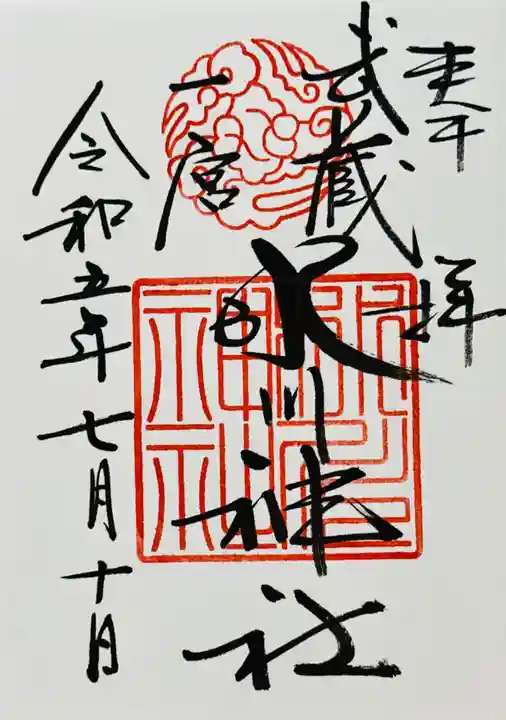 奉拝
武蔵
一宮
氷川神社
令和五年七月十日
氷川
神社